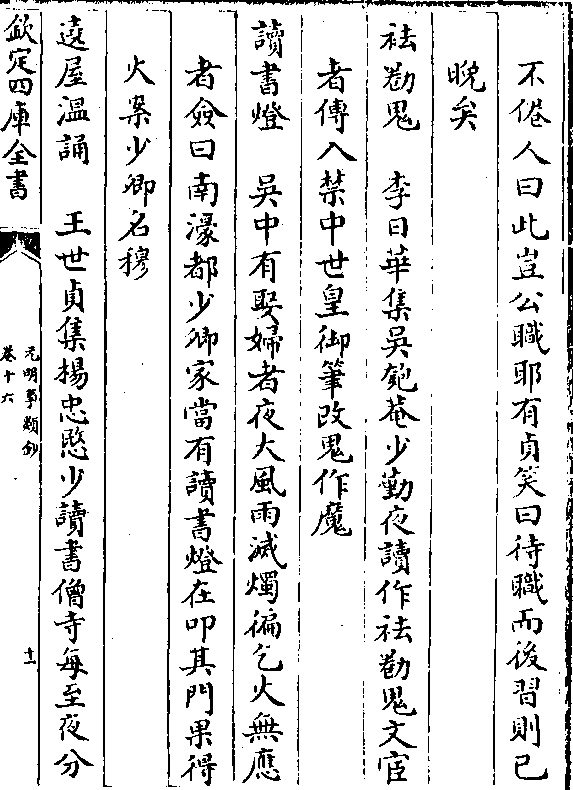 不倦人曰此豈公職耶有貞笑曰待職而後習則已
晚矣
祛勌鬼　李日華集吳匏菴少勤夜讀作祛勌鬼文宦
者傳入禁中世皇御筆改鬼作魔
讀書燈　吳中有娶婦者夜大風雨滅燭徧乞火無應
者僉曰南濠都少卿家當有讀書燈在叩其門果得
火案少卿名穆
遶屋溫誦　王世貞集楊忠愍少讀書僧寺每至夜分
欽定四庫全書
元明事類鈔
卷十六
十一